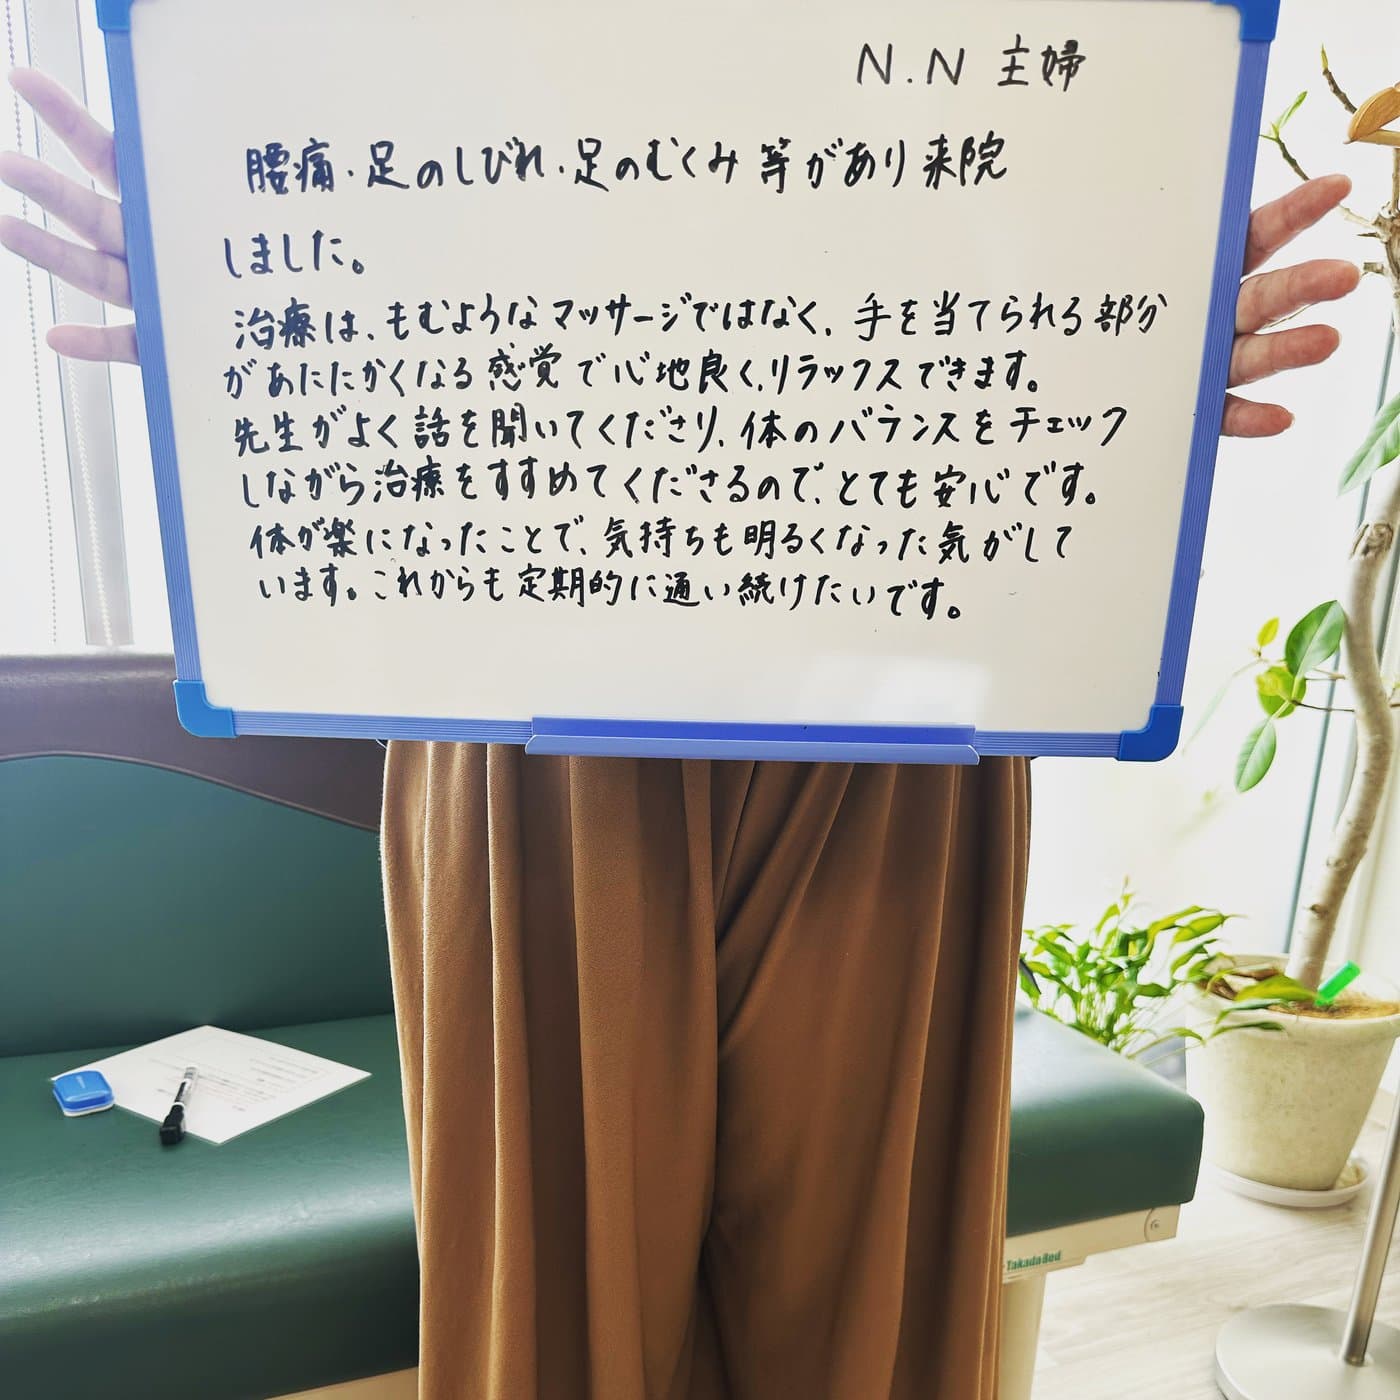 N.N 主婦
腰痛・足のしびれ・足のむくみ等があり来院
しました。
治療は、もむようなマッサージではなく、手を当てられる部分
があたたかくなる感覚で心地良く、リラックスできます。
先生がよく話を聞いてくださり、体のバランスをチェック
しながら治療をすすめてくださるので、とても安心です。
体が楽になったことで、気持ちも明るくなった気がして
います。これからも定期的に通い続けたいです。
Takada Bed